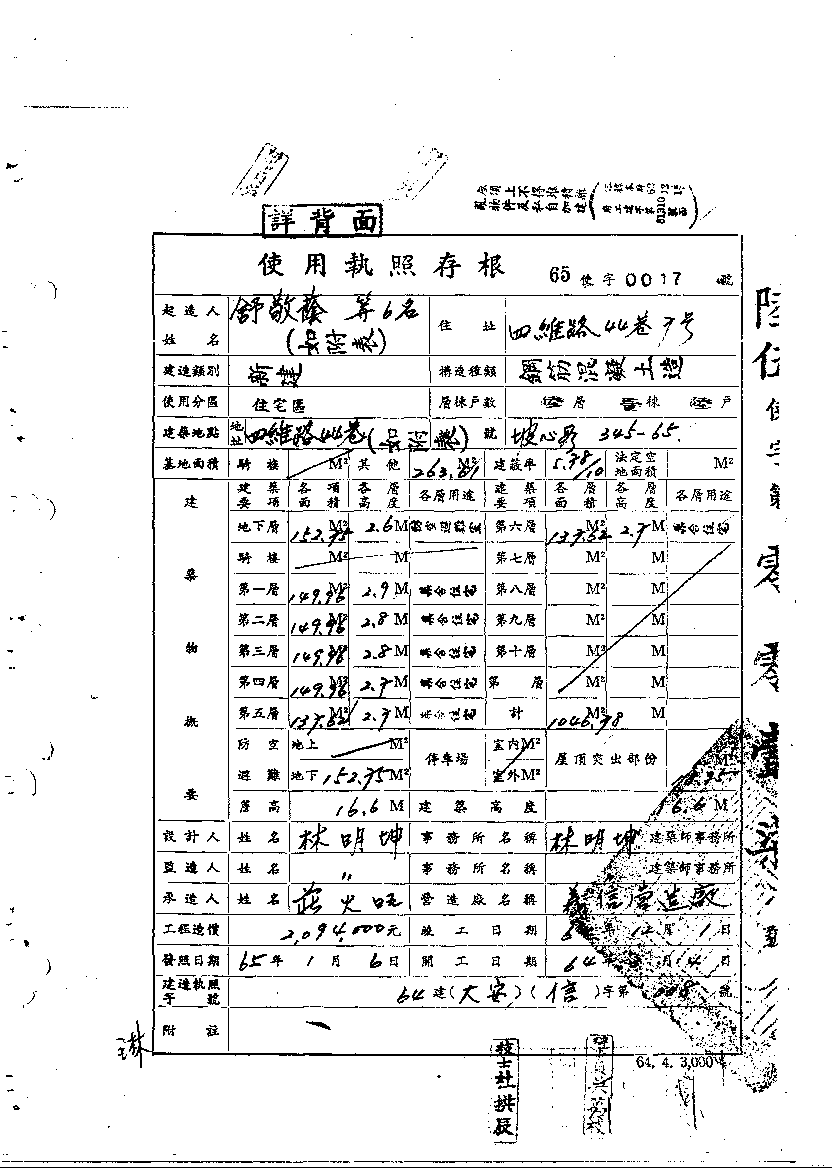 詳背面
使用執照存根 65 使字 0017 號
起造人姓名 舒敬 等6名 (如附表) 住址 四維路44巷7號
建造類別 新建 構造種類 鋼筋混凝土造
使用分區 住宅區 層棟戶數 層 棟 戶
建築地點 地址 四維路44巷(如附表) 號 坡心段 345-65.
基地面積 騎樓 M² 其他 263.81 M² 建蔽率 5.78/10 法定空地面積 M²
建築物概要 建築要項 各項面積 各層高度 各層用途 建築要項 各層面積 各層高度 各層用途
地下層 152.75 M² 2.6 M 第六層 137.62 M² 2.7 M 集合住宅
騎樓 M² M 第七層 M² M
第一層 149.98 M² 2.9 M 集合住宅 第八層 M² M
第二層 149.98 M² 2.8 M 集合住宅 第九層 M² M
第三層 149.98 M² 2.8 M 集合住宅 第十層 M² M
第四層 149.98 M² 2.7 M 集合住宅 第 層 M² M
第五層 137.62 M² 2.7 M 集合住宅 計 1046.78 M²
防空避難 地上 M² 停車場 室內 M² 屋頂突出部份 M²
地下 152.75 M² 室外 M²
簷高 16.6 M 建築高度 16.6 M
設計人 姓名 林明坤 事務所名稱 林明坤 建築師事務所
監造人 姓名 〃 事務所名稱 建築師事務所
承造人 姓名 莊火旺 營造廠名稱 義信營造廠
工程造價 2,094,000元 竣工日期 年12月1日
發照日期 65年1月6日 開工日期 64年 月14日
建造執照字號 64建(大安)(信)字第 號
附註
64. 4. 3,000
技士杜拱辰